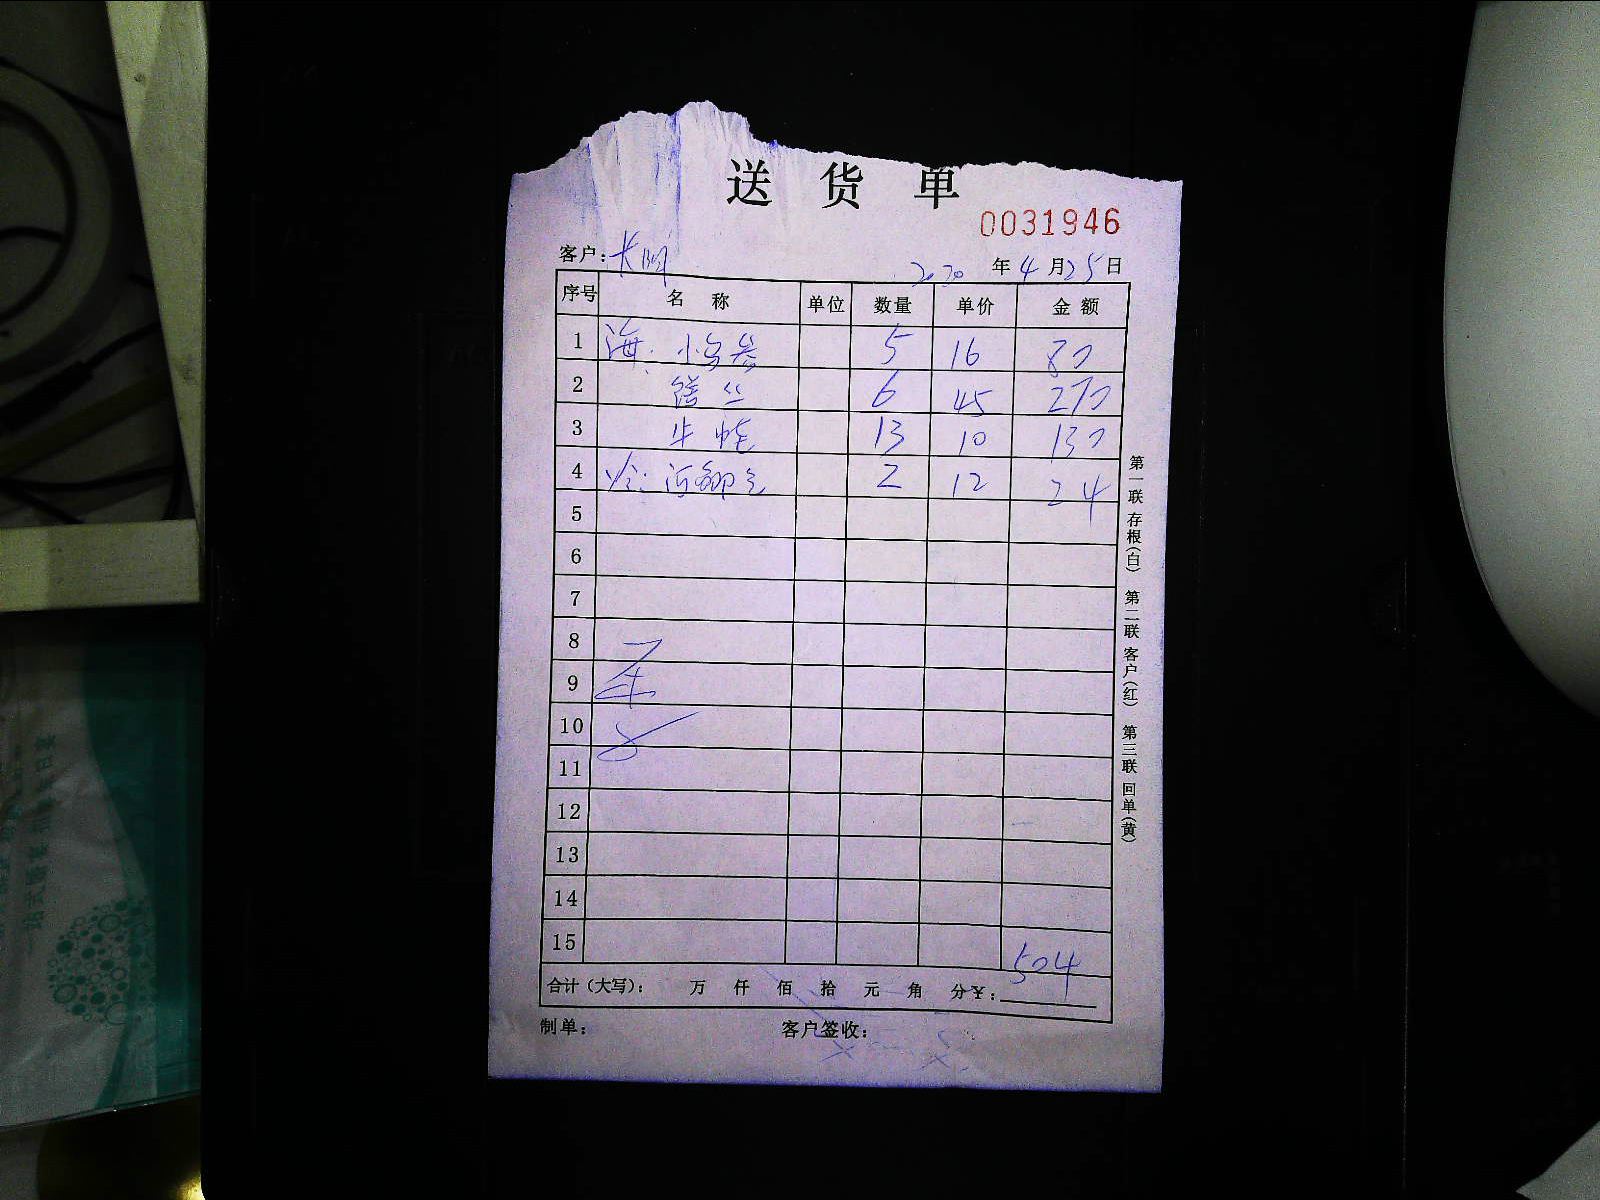 送 货 单
0031946
客户: 长明 2020 年 4 月 25 日
序号 名 称 单位 数量 单价 金 额
1 海: 小乌参 5 16 80
2 6 45 270
3 牛蛙 13 10 130
4 2 12 24
5
6
7
8
9
10
11
12
13
14
15
504
合计(大写): 万 仟 佰 拾 元 角 分 ¥:
制单: 客户签收:
第一联 存根(白) 第二联 客户(红) 第三联 回单(黄)